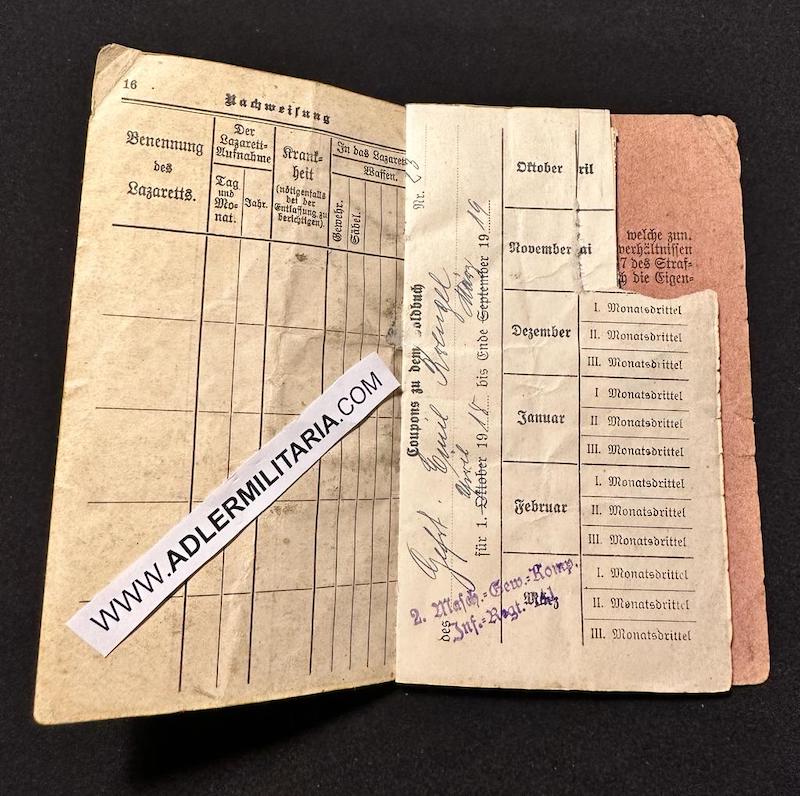 16
Nachweisung
Benennung
des
Lazaretts.
Der
Lazarett-
Aufnahme
Tag
und
Mo-
nat.
Jahr.
Krank-
heit
(nötigenfalls
bei der
Entlassung zu
berichtigen).
In das Lazarett
Waffen.
Gewehr.
Säbel.
WWW.ADLERMILITARIA.COM
Nr. 23
Coupons zu dem Soldbuch
Gefr. Emil
April März
für 1. Oktober 1918 bis Ende September 1919
des
2. Masch.-Gew.-Komp.
Inf.-Regt.
Oktober
ril
November
ai
Dezember
Januar
Februar
März
welche zun.
verhältnissen
7 des Straf-
h die Eigen-
I. Monatsdrittel
II. Monatsdrittel
III. Monatsdrittel
I Monatsdrittel
II Monatsdrittel
III. Monatsdrittel
I. Monatsdrittel
II. Monatsdrittel
III. Monatsdrittel
I. Monatsdrittel
II. Monatsdrittel
III. Monatsdrittel